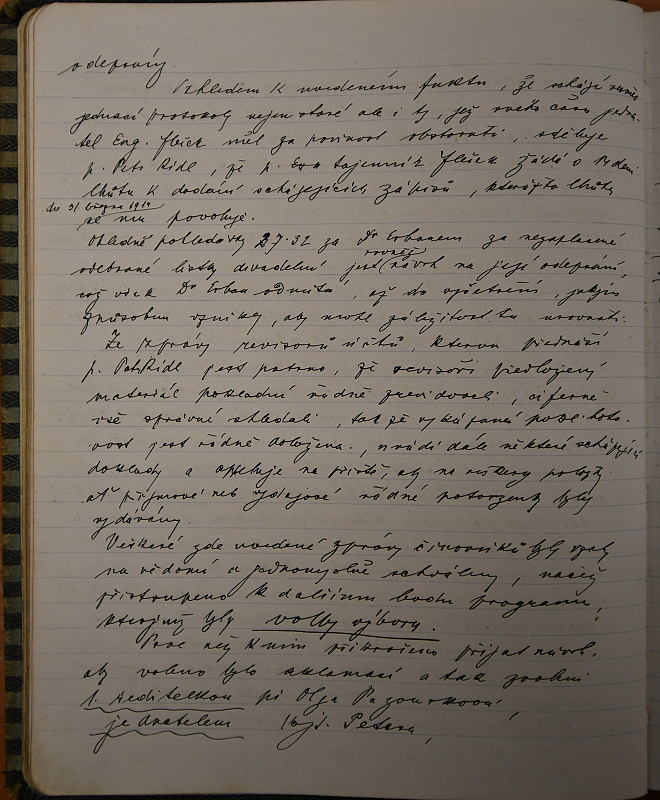 odepsány.
Vzhledem k uvedenému faktu, že schází
jednací protokoly nejen staré ale i ty, jež svého času jedna-
tel Eng. Fleck měl za povinost obstarati, sděluje
p. Petr Ridl, že p. tajemník Fleck žádá o týdení
lhůtu k dodání scházejících zápisů, kterážto lhůta
do 31 března 1914
se mu povoluje.
Ohledně pohledávky 27·32 za Dr Erbanem za nezaplacené
rovněž
odebrané lístky divadelní jest návrh na její odepsání,
což však Dr Erban odmítá, až do vyšetření, jakým
způsobem vznikly, aby mohl záležitost tu urovnati.
Ze zprávy revisorů účtů, kterou přednáší
p. Petr Ridl jest patrno, že revisoři předložený
materiál pokladní řádně zrevidovali, ciferně
vše správné shledali, tak že vykázaná pokl. hoto-
vost jest řádně doložena, uvádí dále některé scházející
doklady a apeluje na příště, by na veškery položky
ať příjmové neb výdajové řádné potvrzenky byly
vydávány.
Veškeré zde uvedené zprávy činovníků byly vzaty
na vědomí a jednomyslně schváleny, načež
přistoupeno k dalšímu bodu programu,
kterýmž byly volby výboru.
Prve než k nim přikročeno přijat návrh,
aby voleno bylo aklamací a tak zvoleni
1. ředitelkou pí Olga Pazourková,
jednatelem Petara,